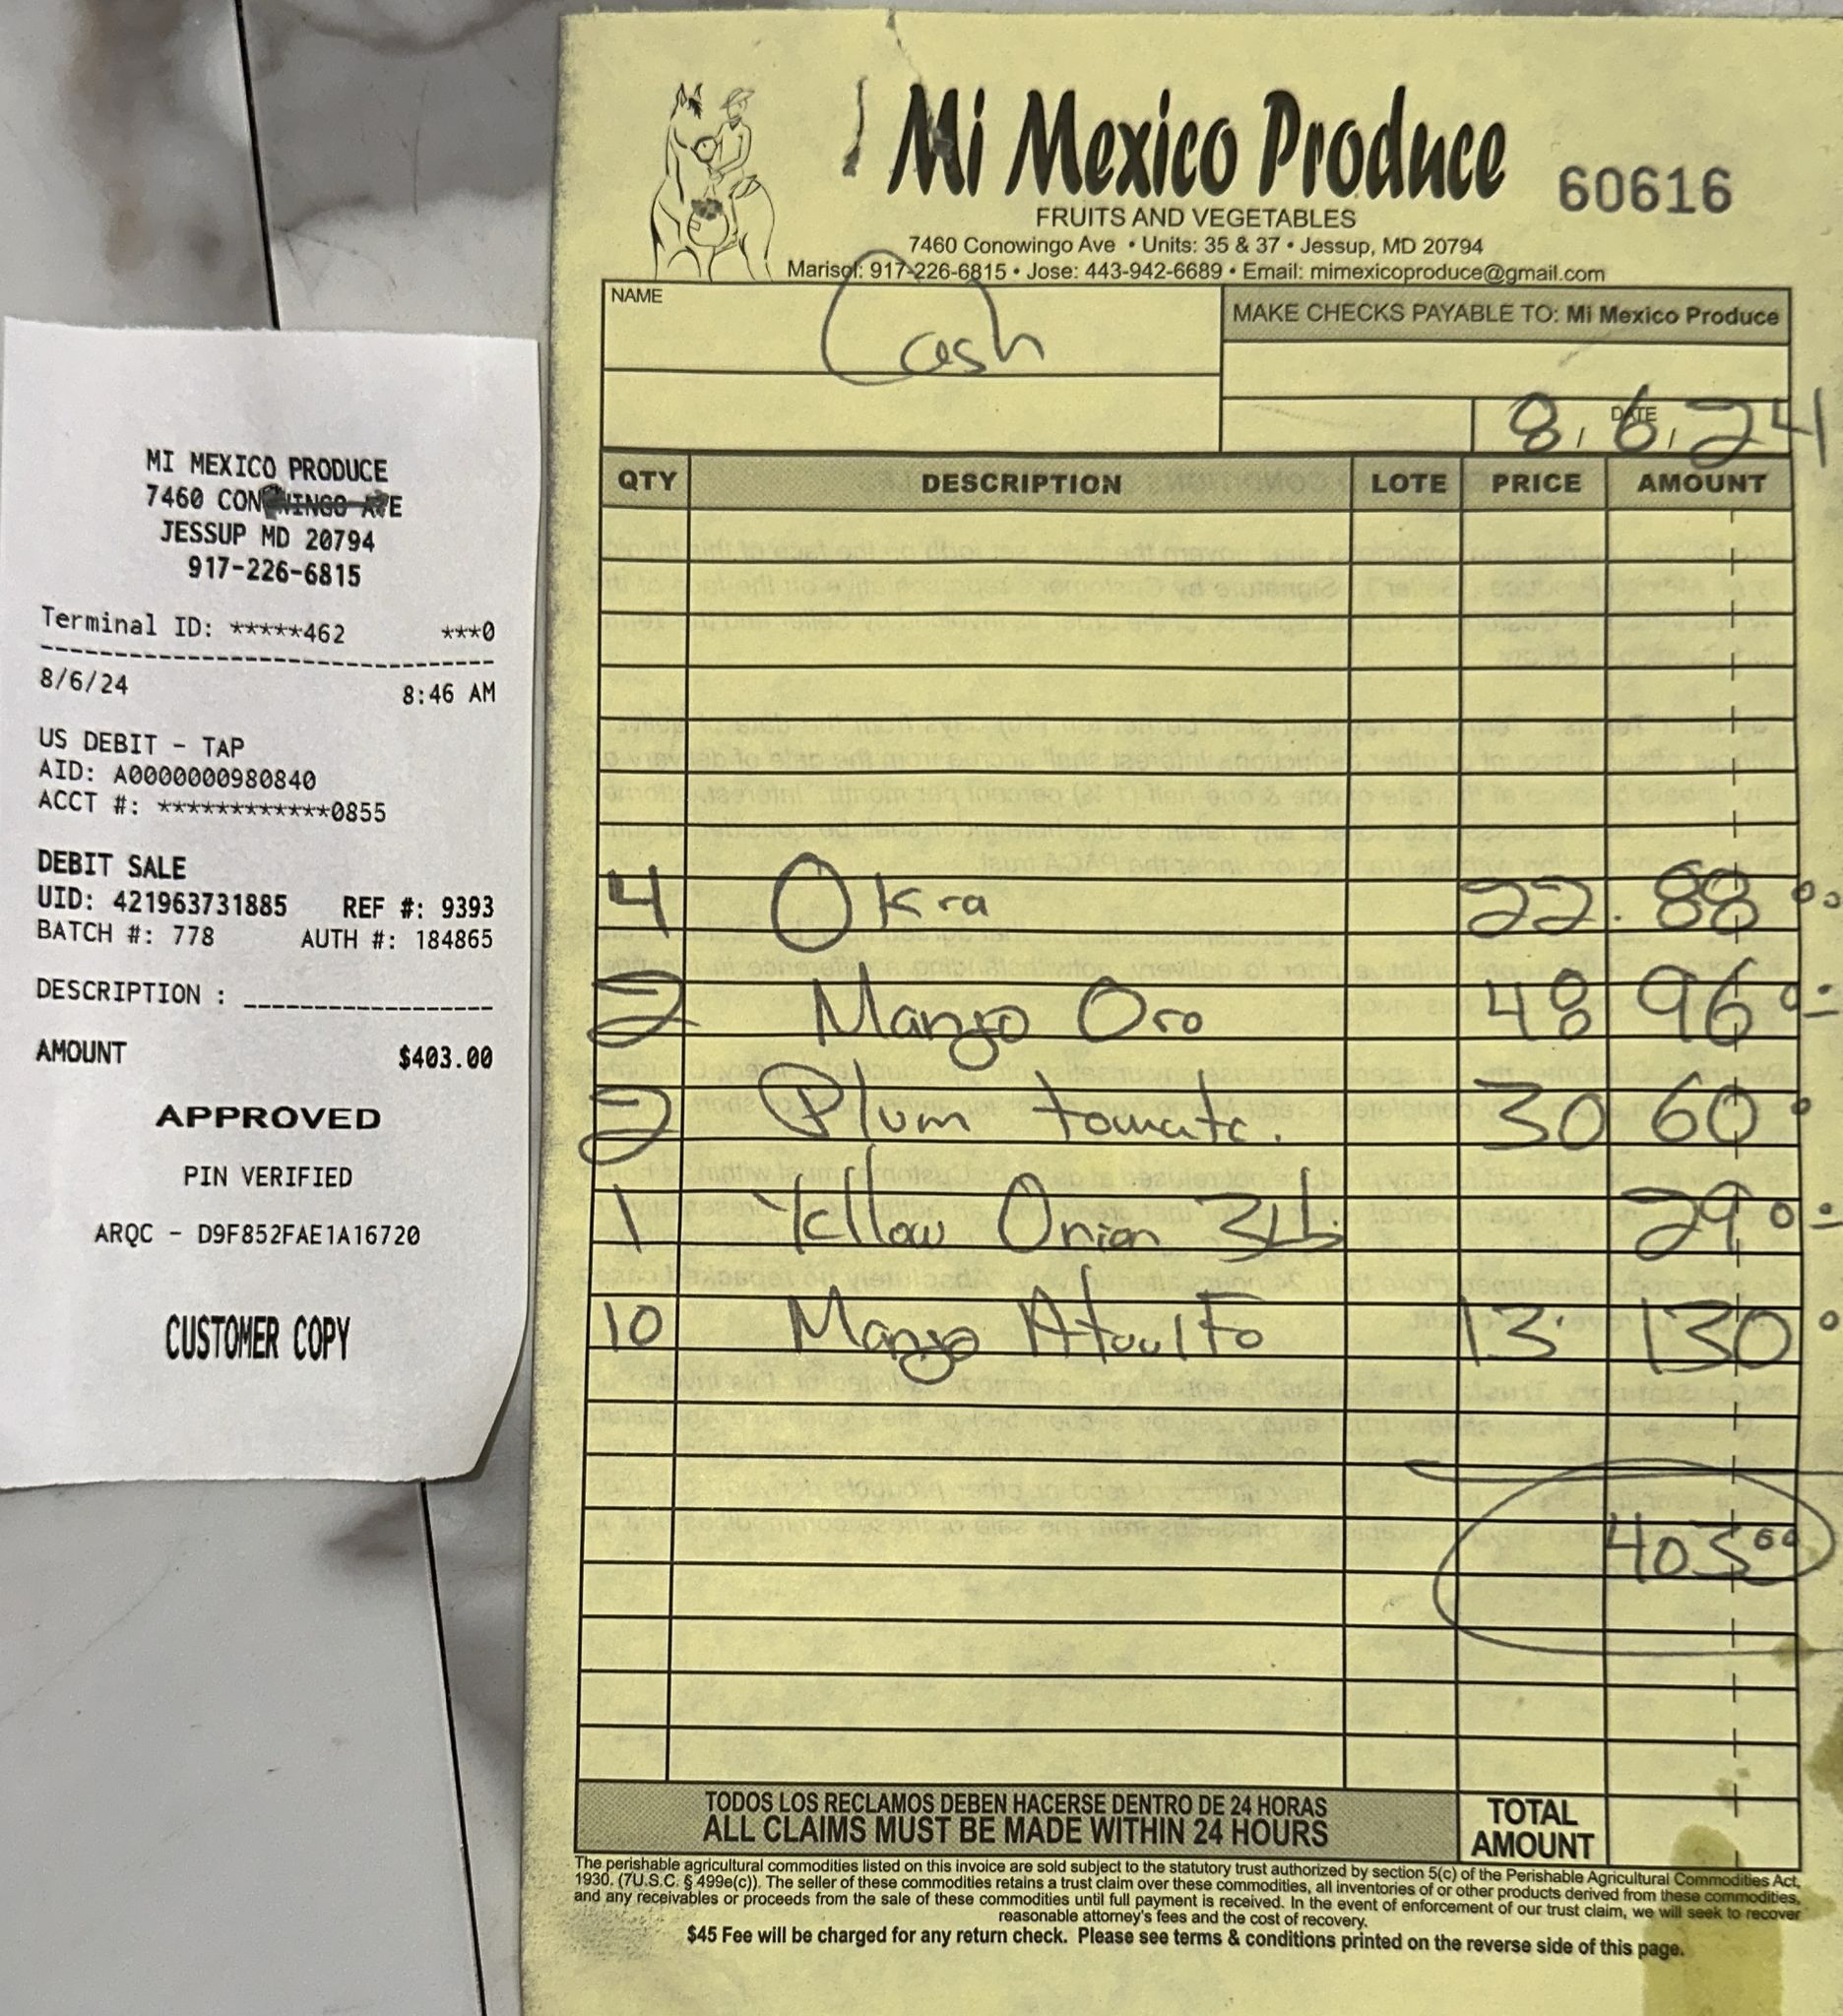 MI MEXICO PRODUCE
7460 CON
JESSUP MD 20794
917-226-6815
Terminal ID: *****462 ***0
8/6/24 8:46 AM
US DEBIT - TAP
AID: A0000000980840
ACCT #: ************0855
DEBIT SALE
UID: 421963731885 REF #: 9393
BATCH #: 778 AUTH #: 184865
DESCRIPTION : ________________
AMOUNT $403.00
APPROVED
PIN VERIFIED
ARQC - D9F852FAE1A16720
CUSTOMER COPY
Mi Mexico Produce 60616
FRUITS AND VEGETABLES
7460 Conowingo Ave • Units: 35 & 37 • Jessup, MD 20794
Marisol: 917-226-6815 • Jose: 443-942-6689 • Email: mimexicoproduce@gmail.com
NAME Cash
MAKE CHECKS PAYABLE TO: Mi Mexico Produce
DATE 8/6/24
QTY DESCRIPTION LOTE PRICE AMOUNT
4 Okra 22. 88 00
2 Mango Oro 48 96 0
2 Plum tomato. 30 60 0
1 Yellow Onion 3Lb 29 0
10 Mango Ataulfo 13. 130 0
403 00
TODOS LOS RECLAMOS DEBEN HACERSE DENTRO DE 24 HORAS
ALL CLAIMS MUST BE MADE WITHIN 24 HOURS
TOTAL AMOUNT
The perishable agricultural commodities listed on this invoice are sold subject to the statutory trust authorized by section 5(c) of the Perishable Agricultural Commodities Act,
1930. (7U.S.C. § 499e(c)). The seller of these commodities retains a trust claim over these commodities, all inventories of or other products derived from these commodities,
and any receivables or proceeds from the sale of these commodities until full payment is received. In the event of enforcement of our trust claim, we will seek to recover
reasonable attorney's fees and the cost of recovery.
$45 Fee will be charged for any return check. Please see terms & conditions printed on the reverse side of this page.